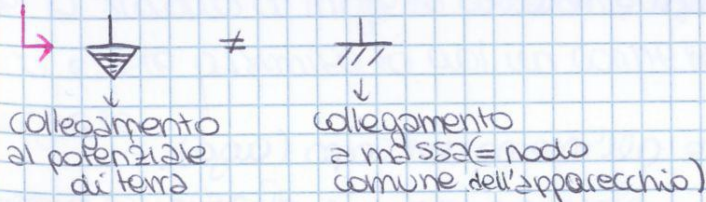 ≠
collegamento
al potenziale
di terra
collegamento
a massa (= nodo
comune dell'apparecchio)